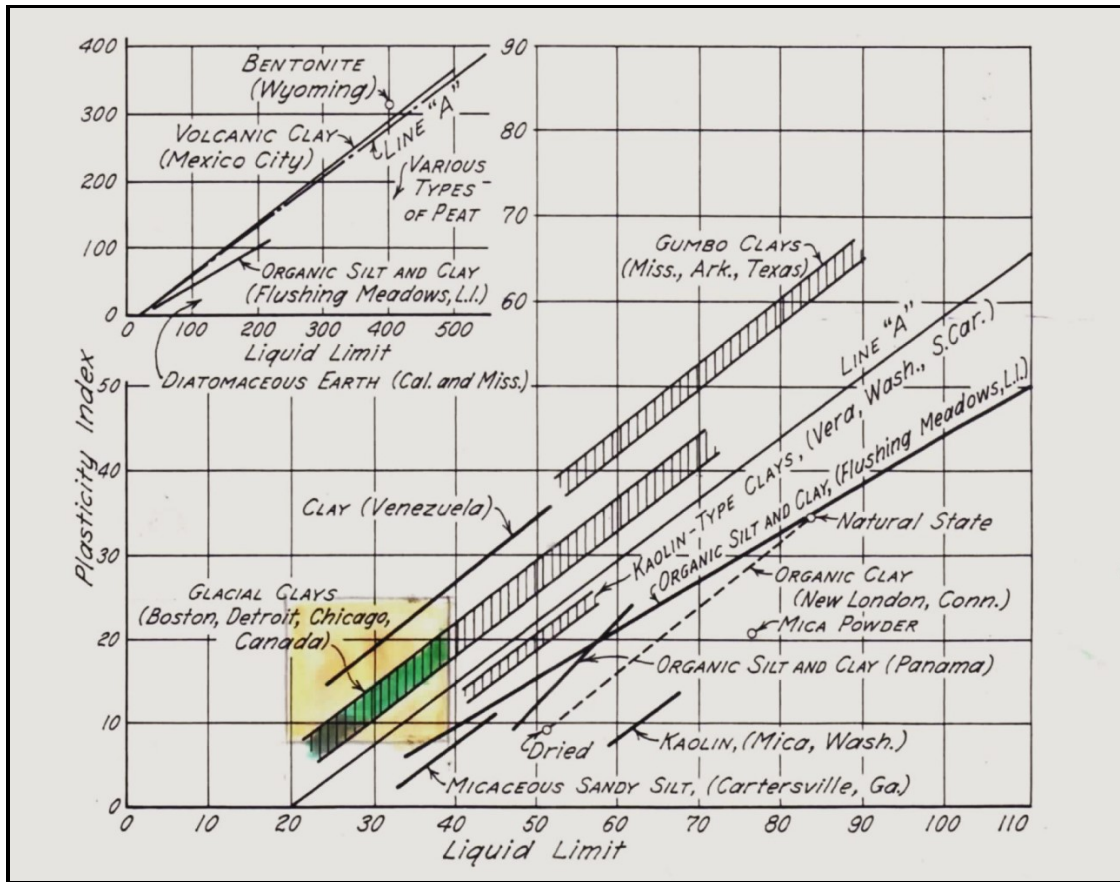 400
300
200
100
0
BENTONITE
(Wyoming)
VOLCANIC CLAY
(Mexico City)
LINE "A"
VARIOUS
TYPES
OF PEAT
ORGANIC SILT AND CLAY
(Flushing Meadows, L.I.)
0 100 200 300 400 500
Liquid Limit
DIATOMACEOUS EARTH (Cal. and Miss.)
90
80
70
60
50
40
30
20
10
0
Plasticity Index
GUMBO CLAYS
(Miss., Ark., Texas)
LINE "A"
KAOLIN-TYPE CLAYS, (Vera, Wash., S.Car.)
ORGANIC SILT AND CLAY, (Flushing Meadows, L.I.)
CLAY (Venezuela)
GLACIAL CLAYS
(Boston, Detroit, Chicago,
Canada)
Natural State
ORGANIC CLAY
(New London, Conn.)
MICA POWDER
ORGANIC SILT AND CLAY (Panama)
Dried
KAOLIN, (Mica, Wash.)
MICACEOUS SANDY SILT, (Cartersville, Ga.)
0 10 20 30 40 50 60 70 80 90 100 110
Liquid Limit